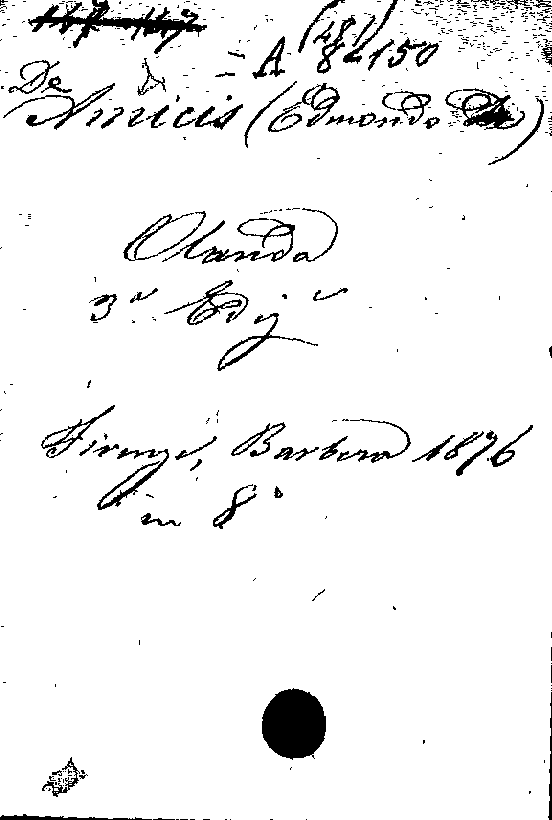 117 117
(481)
= A 82150
De
Amicis (Edmondo De)
Olanda
3ª Ediz.ᵉ
Firenze, Barbera 1876
in 8°